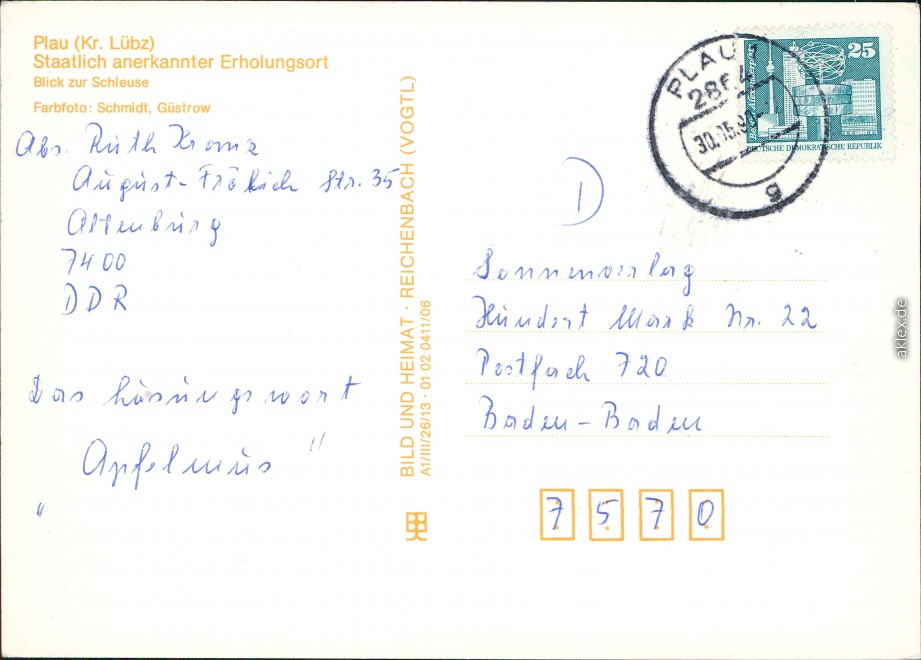 Plau (Kr. Lübz)
Staatlich anerkannter Erholungsort
Blick zur Schleuse
Farbfoto: Schmidt, Güstrow
Abs. Ruth
August- Str. 35
Altenburg
7400
DDR
Das Lösungswort
"Apfelmus"
BILD UND HEIMAT · REICHENBACH (VOGTL)
A1/III/26/13 · 01 02 0411/06
PLAU
286
30.
g
25
DEUTSCHE DEMOKRATISCHE REPUBLIK
D
Sonnenverlag
Hundert Mark Nr. 22
Postfach 720
Baden-Baden
7570
aklex.de